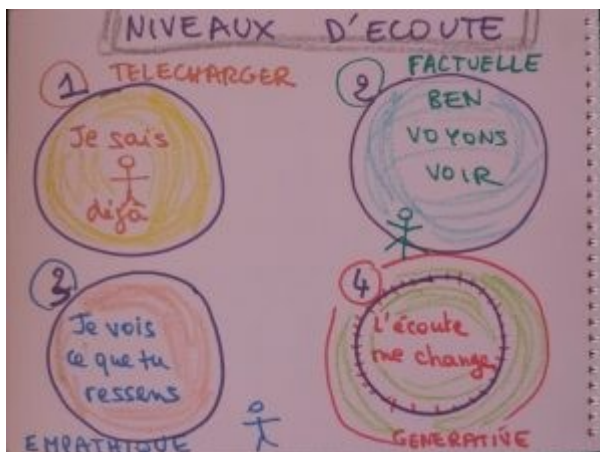 NIVEAUX D'ECOUTE
1 TELECHARGER
Je sais
déjà
2 FACTUELLE
BEN
VOYONS
VOIR
3
Je vois
ce que tu
ressens
EMPATHIQUE
4
L'écoute
me change
GENERATIVE